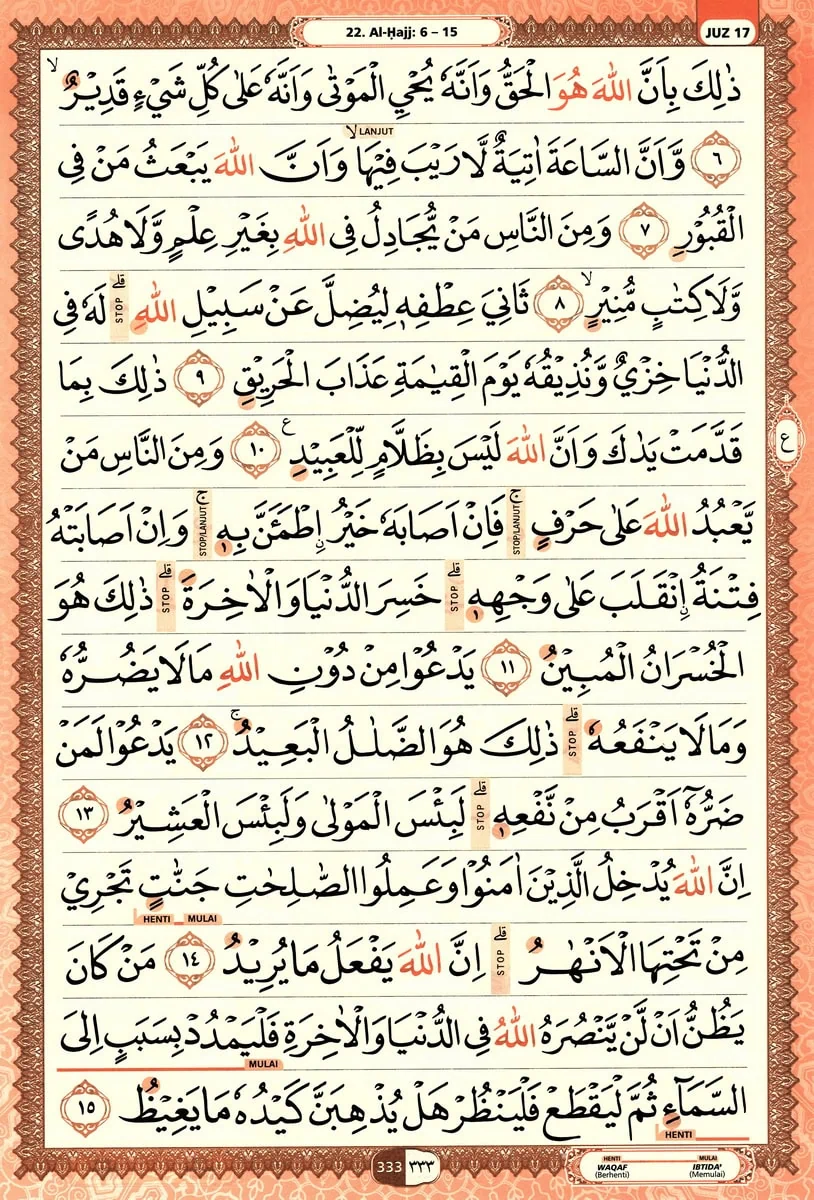 22. Al-Ḥajj: 6 – 15
JUZ 17
ذٰلِكَ بِاَنَّ اللّٰهَ هُوَ الْحَقُّ وَاَنَّهٗ يُحْيِ الْمَوْتٰى وَاَنَّهٗ عَلٰى كُلِّ شَيْءٍ قَدِيْرٌ ۙ
٦ وَّاَنَّ السَّاعَةَ اٰتِيَةٌ لَّا رَيْبَ فِيْهَا ۙ LANJUT وَاَنَّ اللّٰهَ يَبْعَثُ مَنْ فِى
الْقُبُوْرِ ٧ وَمِنَ النَّاسِ مَنْ يُّجَادِلُ فِى اللّٰهِ بِغَيْرِ عِلْمٍ وَّلَا هُدًى
وَّلَا كِتٰبٍ مُّنِيْرٍ ۙ ٨ ثَانِيَ عِطْفِهٖ لِيُضِلَّ عَنْ سَبِيْلِ اللّٰهِ ۗ STOP لَهٗ فِى
الدُّنْيَا خِزْيٌ وَّنُذِيْقُهٗ يَوْمَ الْقِيٰمَةِ عَذَابَ الْحَرِيْقِ ٩ ذٰلِكَ بِمَا
قَدَّمَتْ يَدٰكَ وَاَنَّ اللّٰهَ لَيْسَ بِظَلَّامٍ لِّلْعَبِيْدِ ࣖ ١٠ وَمِنَ النَّاسِ مَنْ
ع
يَّعْبُدُ اللّٰهَ عَلٰى حَرْفٍ ۚ STOP/LANJUT فَاِنْ اَصَابَهٗ خَيْرُ ۨاطْمَـَٔنَّ بِهٖ ۚ STOP/LANJUT وَاِنْ اَصَابَتْهُ
فِتْنَةُ ۨانْقَلَبَ عَلٰى وَجْهِهٖ ۗ STOP خَسِرَ الدُّنْيَا وَالْاٰخِرَةَ ۗ STOP ذٰلِكَ هُوَ
الْخُسْرَانُ الْمُبِيْنُ ١١ يَدْعُوْا مِنْ دُوْنِ اللّٰهِ مَا لَا يَضُرُّهٗ
وَمَا لَا يَنْفَعُهٗ ۗ STOP ذٰلِكَ هُوَ الضَّلٰلُ الْبَعِيْدُ ۚ ١٢ يَدْعُوْا لَمَنْ
ضَرُّهٗٓ اَقْرَبُ مِنْ نَّفْعِهٖ ۗ STOP لَبِئْسَ الْمَوْلٰى وَلَبِئْسَ الْعَشِيْرُ ١٣
اِنَّ اللّٰهَ يُدْخِلُ الَّذِيْنَ اٰمَنُوْا وَعَمِلُوا الصّٰلِحٰتِ جَنّٰتٍ تَجْرِيْ
HENTI MULAI
مِنْ تَحْتِهَا الْاَنْهٰرُ ۗ STOP اِنَّ اللّٰهَ يَفْعَلُ مَا يُرِيْدُ ١٤ مَنْ كَانَ
يَظُنُّ اَنْ لَّنْ يَّنْصُرَهُ اللّٰهُ فِى الدُّنْيَا وَالْاٰخِرَةِ فَلْيَمْدُدْ بِسَبَبٍ اِلَى
MULAI
السَّمَاۤءِ ثُمَّ لْيَقْطَعْ فَلْيَنْظُرْ هَلْ يُذْهِبَنَّ كَيْدُهٗ مَا يَغِيْظُ ١٥
HENTI
333 ٣٣٣
HENTI MULAI
WAQAF IBTIDA'
(Berhenti) (Memulai)